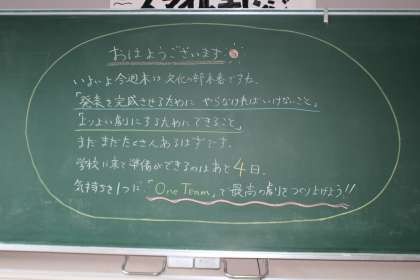 おはようございます
いよいよ今週末は文化の部本番ですね。
「発表を完成させるためにやらなければいけないこと」
「よりよい劇にするためにできること」
まだまだたくさんあるはずです。
学校に来て準備ができるのはあと4日。
気持ちを1つに「One Team」で最高の劇をつくり上げよう!!